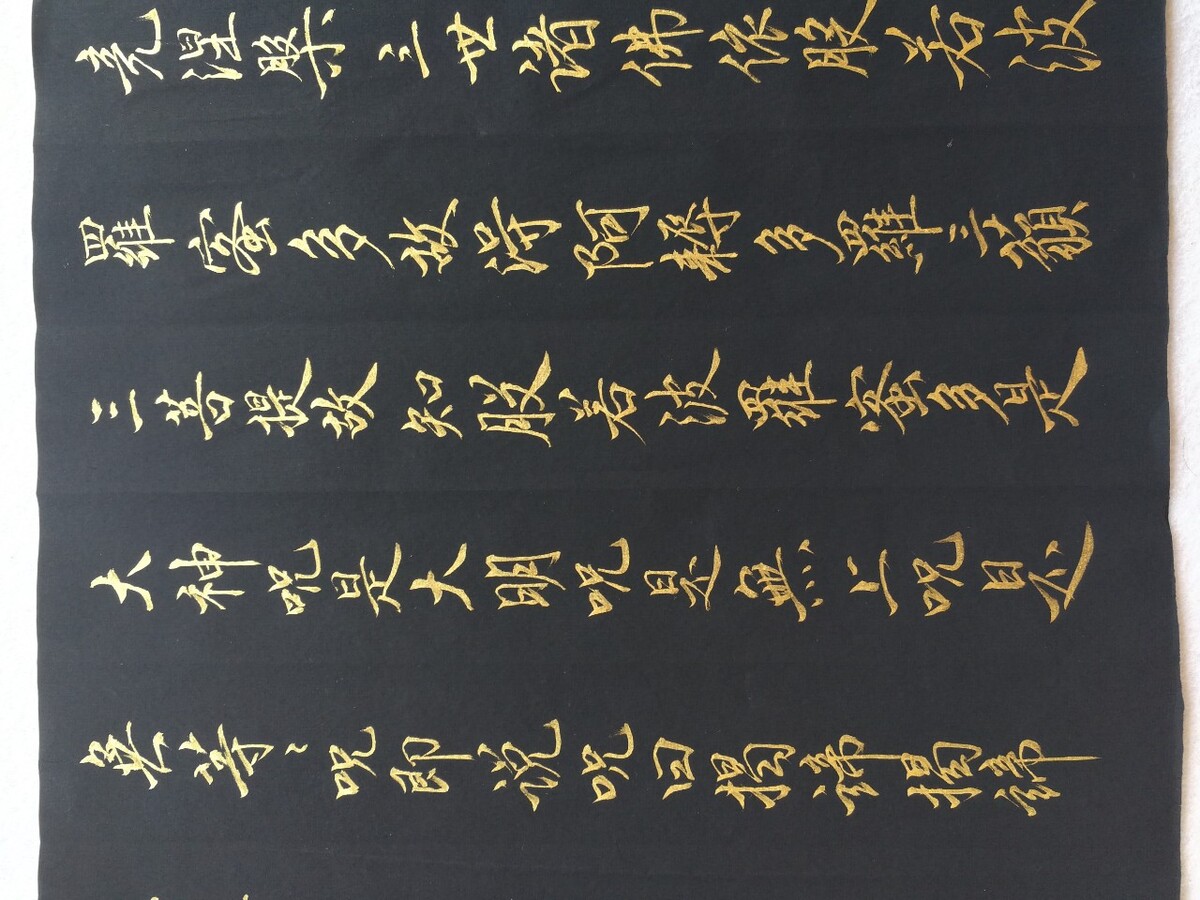 竟涅槃三世諸佛依般若波
羅蜜多故得阿耨多羅三藐
三菩提故知般若波羅蜜多是
大神呪是大明呪是無上呪是
無等々呪即說呪曰揭諦揭諦